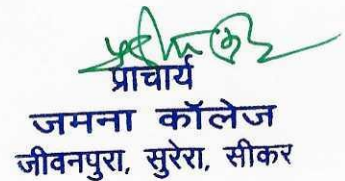 प्राचार्य
जमना कॉलेज
जीवनपुरा, सुरेरा, सीकर